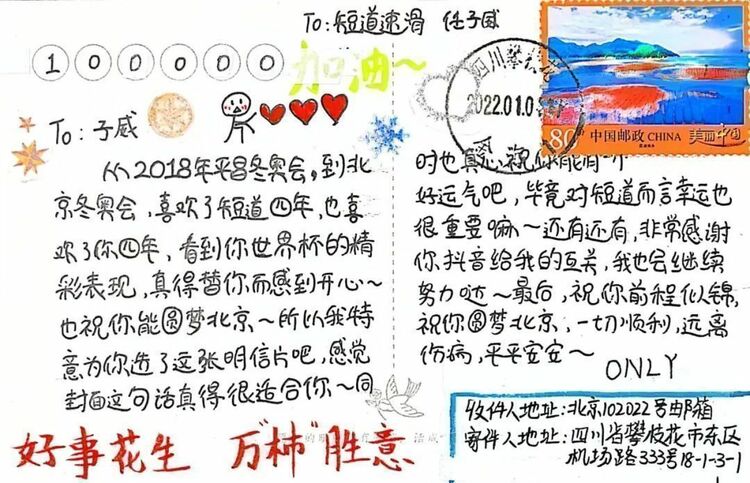 To: 短道速滑 任子威
100000
加油~
四川攀枝花
2022.01.0
80
中国邮政 CHINA 美丽中国
To: 子威
从2018年平昌冬奥会，到北
京冬奥会，喜欢了短道四年，也喜
欢了你四年，看到你世界杯的精
彩表现，真得替你而感到开心~
也祝你能圆梦北京~所以我特
意为你选了这张明信片吧，感觉
封面这句话真得很适合你~同
时也真心祝你能有一个
好运气吧，毕竟对短道而言幸运也
很重要嘛~还有还有，非常感谢
你抖音给我的互关，我也会继续
努力哒~最后，祝你前程似锦，
祝你圆梦北京，一切顺利，远离
伤病，平平安安~
ONLY
好事花生 万"柿"胜意
收件人地址：北京102022号邮箱
寄件人地址：四川省攀枝花市东区
机场路333号18-1-3-1